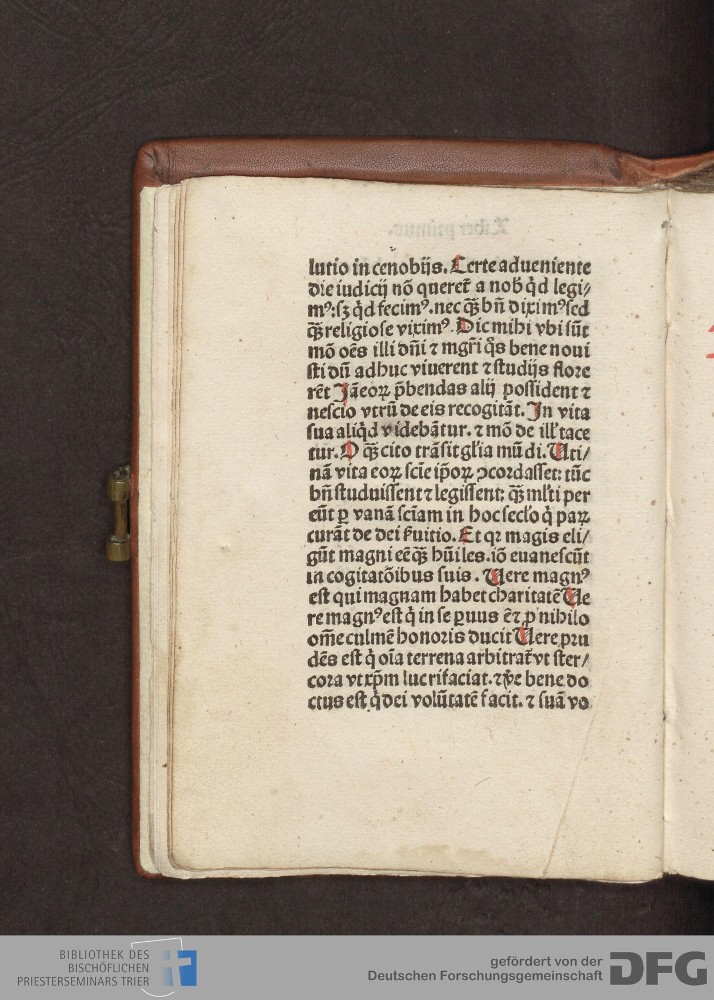 lutio in cenobijs. Certe adueniente
die iudicij nō queret̄ a nob̄ qͥd legi/
mꝰ: sꝫ qͥd fecimꝰ. nec qᷓꝫ bn̄ diximꝰ sed
qᷓꝫ religiose viximꝰ. Dic mihi vbi sūt
mō oēs illi dn̄i ⁊ mgr̄i qͦs bene noui
sti dū adhuc viuerent ⁊ studijs flore
rēt Jā eoꝝ p̄bendas alij possident ⁊
nescio vtrū de eis recogitāt. Jn vita
sua aliqͥd videbātur. ⁊ mō de ill' tace
tur. O qᷓꝫ cito trāsit gl'ia mūdi. Uti/
nā vita eoꝝ scīe ip̄oꝝ ꝯcordasset: tūc
bn̄ studuissent ⁊ legissent: qᷓꝫ ml'ti per
eūt ꝑ vanā scīam in hoc secl'o qͥ paꝝ
curāt de dei s̓uitio. Et qꝛ magis eli/
gūt magni eē qᷓꝫ hūiles. iō euanescūt
in cogitatōibus suis. Uere magnꝰ
est qui magnam habet charitatē Ue
re magnꝰ est qͥ in se ꝑuus ē ⁊ ꝓ nihilo
om̄e culmē honoris ducit Uere pru
dēs est qͥ oīa terrena arbitrat̄ vt ster/
cora vt xp̄m lucrifaciat. ⁊ v̓e bene do
ctus est qͥ dei volūtatē facit. ⁊ suā vo
BIBLIOTHEK DES
BISCHÖFLICHEN
PRIESTERSEMINARS TRIER
gefördert von der
Deutschen Forschungsgemeinschaft
DFG